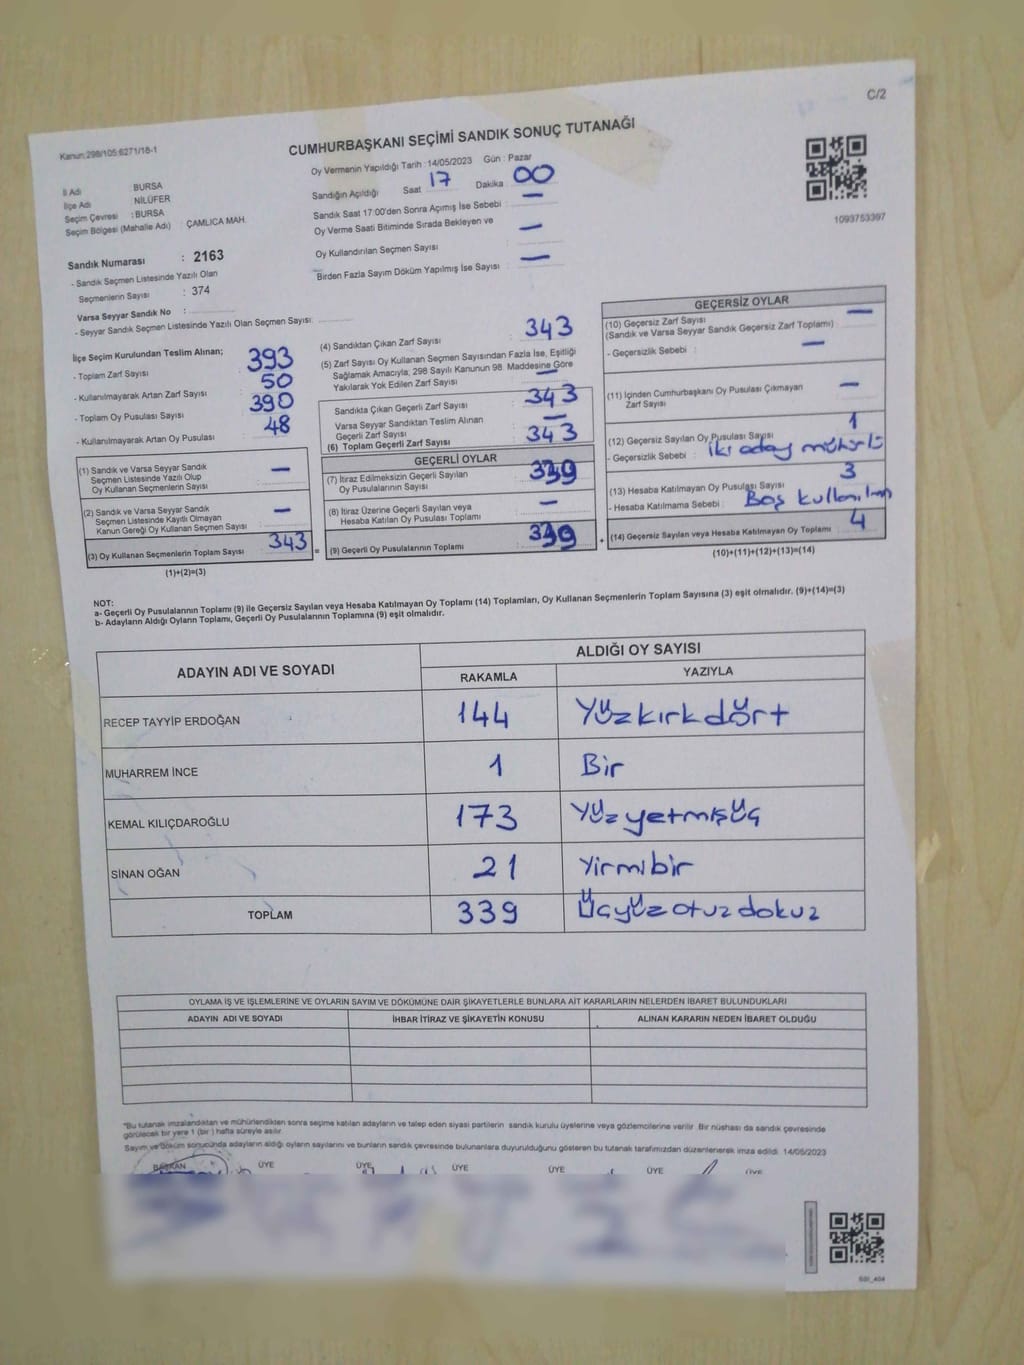 C/2
Kanun:298/105:6271/18-1
CUMHURBAŞKANI SEÇİMİ SANDIK SONUÇ TUTANAĞI
Oy Vermenin Yapıldığı Tarih : 14/05/2023 Gün : Pazar
İl Adı BURSA
İlçe Adı NİLÜFER
Seçim Çevresi : BURSA
Seçim Bölgesi (Mahalle Adı) ÇAMLICA MAH.
Sandığın Açıldığı Saat 17 Dakika 00
Sandık Saat 17:00'den Sonra Açımış İse Sebebi : —
Oy Verme Saati Bitiminde Sırada Bekleyen ve
Oy Kullandırılan Seçmen Sayısı : —
Birden Fazla Sayım Döküm Yapılmış İse Sayısı : —
1093753397
Sandık Numarası : 2163
- Sandık Seçmen Listesinde Yazılı Olan
Seçmenlerin Sayısı : 374
Varsa Seyyar Sandık No :
- Seyyar Sandık Seçmen Listesinde Yazılı Olan Seçmen Sayısı:
İlçe Seçim Kurulundan Teslim Alınan;
- Toplam Zarf Sayısı : 393
- Kullanılmayarak Artan Zarf Sayısı : 50
- Toplam Oy Pusulası Sayısı : 390
- Kullanılmayarak Artan Oy Pusulası : 48
(1) Sandık ve Varsa Seyyar Sandık
Seçmen Listesinde Yazılı Olup
Oy Kullanan Seçmenlerin Sayısı : —
(2) Sandık ve Varsa Seyyar Sandık
Seçmen Listesinde Kayıtlı Olmayan
Kanun Gereği Oy Kullanan Seçmen Sayısı : —
(3) Oy Kullanan Seçmenlerin Toplam Sayısı : 343
(1)+(2)=(3)
(4) Sandıktan Çıkan Zarf Sayısı : 343
(5) Zarf Sayısı Oy Kullanan Seçmen Sayısından Fazla İse, Eşitliği
Sağlamak Amacıyla; 298 Sayılı Kanunun 98. Maddesine Göre
Yakılarak Yok Edilen Zarf Sayısı : —
Sandıkta Çıkan Geçerli Zarf Sayısı : 343
Varsa Seyyar Sandıktan Teslim Alınan
Geçerli Zarf Sayısı : —
(6) Toplam Geçerli Zarf Sayısı : 343
GEÇERLİ OYLAR
(7) İtiraz Edilmeksizin Geçerli Sayılan
Oy Pusulalarının Sayısı : 339
(8) İtiraz Üzerine Geçerli Sayılan veya
Hesaba Katılan Oy Pusulası Toplamı : —
= (9) Geçerli Oy Pusulalarının Toplamı : 339
GEÇERSİZ OYLAR
(10) Geçersiz Zarf Sayısı : —
(Sandık ve Varsa Seyyar Sandık Geçersiz Zarf Toplamı)
- Geçersizlik Sebebi : —
(11) İçinden Cumhurbaşkanı Oy Pusulası Çıkmayan
Zarf Sayısı : —
(12) Geçersiz Sayılan Oy Pusulası Sayısı : 1
- Geçersizlik Sebebi : İki aday mühürlü
(13) Hesaba Katılmayan Oy Pusulası Sayısı : 3
- Hesaba Katılmama Sebebi : Boş kullanılan
+ (14) Geçersiz Sayılan veya Hesaba Katılmayan Oy Toplamı : 4
(10)+(11)+(12)+(13)=(14)
NOT:
a- Geçerli Oy Pusulalarının Toplamı (9) ile Geçersiz Sayılan veya Hesaba Katılmayan Oy Toplamı (14) Toplamları, Oy Kullanan Seçmenlerin Toplam Sayısına (3) eşit olmalıdır. (9)+(14)=(3)
b- Adayların Aldığı Oyların Toplamı, Geçerli Oy Pusulalarının Toplamına (9) eşit olmalıdır.
ADAYIN ADI VE SOYADI ALDIĞI OY SAYISI
RAKAMLA YAZIYLA
RECEP TAYYİP ERDOĞAN 144 Yüzkırkdört
MUHARREM İNCE 1 Bir
KEMAL KILIÇDAROĞLU 173 Yüzyetmişüç
SİNAN OĞAN 21 Yirmibir
TOPLAM 339 Üçyüzotuzdokuz
OYLAMA İŞ VE İŞLEMLERİNE VE OYLARIN SAYIM VE DÖKÜMÜNE DAİR ŞİKAYETLERLE BUNLARA AİT KARARLARIN NELERDEN İBARET BULUNDUKLARI
ADAYIN ADI VE SOYADI İHBAR İTİRAZ VE ŞİKAYETİN KONUSU ALINAN KARARIN NEDEN İBARET OLDUĞU
*Bu tutanak imzalandıktan ve mühürlendikten sonra seçime katılan adayların ve talep eden siyasi partilerin sandık kurulu üyelerine veya gözlemcilerine verilir. Bir nüshası da sandık çevresinde
görülecek bir yere 1 (bir ) hafta süreyle asılır.
Sayım ve döküm sonucunda adayların aldığı oyların sayılarını ve bunların sandık çevresinde bulunanlara duyurulduğunu gösteren bu tutanak tarafımızdan düzenlenerek imza edildi. 14/05/2023
BAŞKAN ÜYE ÜYE ÜYE ÜYE ÜYE ÜYE